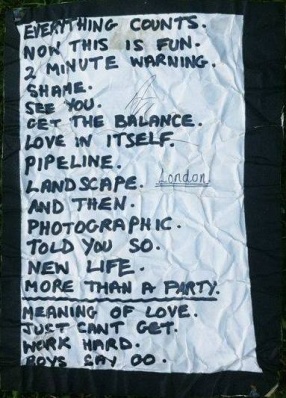 EVERYTHING COUNTS.
NOW THIS IS FUN.
2 MINUTE WARNING.
SHAME.
SEE YOU.
GET THE BALANCE.
LOVE IN ITSELF.
PIPELINE.
LANDSCAPE. London
AND THEN.
PHOTOGRAPHIC.
TOLD YOU SO.
NEW LIFE.
MORE THAN A PARTY.
MEANING OF LOVE.
JUST CANT GET.
WORK HARD.
BOYS SAY OO.